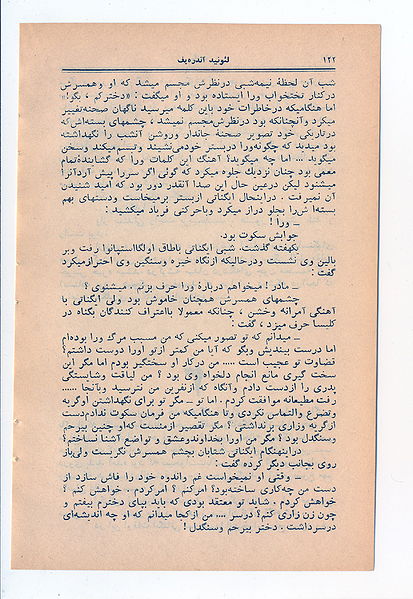 ۱۲۲ لئونید آندره‌یف
شب آن لحظهٔ نیمه‌شبی درنظرش مجسم میشد که او وهمسرش
درکنار تختخواب ورا ایستاده بود و او میگفت : «دخترکم ، بگو!»
اما هنگامیکه درخاطرات خود باین کلمه میرسید ناگهان صحنه‌تغییر
میکرد وآنچنانکه بود درنظرش‌مجسم نمیشد ، چشمهای بسته‌اش‌که
درتاریکی خود تصویر صحنهٔ جاندار وروشن آنشب را نگهداشته
بود میدید که چگونه‌ورا دربستر خودمی‌نشیند وتبسم‌میکند وسخن
میگوید ... اما چه میگوید؟ آهنگ این کلمات ورا که گشایندهٔ‌تمام
معمی بود چنان نزدیك جلوه میکرد که گوئی اگر سررا پیش آردآنرا
میشنود لیکن درعین حال این صدا آنقدر دور بود که امید شنیدن
آن نمیرفت . دراینحال ایگناتی ازبستر برمیخاست ودستهای بهم
بسته‌اش‌را بجلو دراز میکرد وباحرکتی فریاد میکشید :
ــ ورا !
جوابش سکوت بود.
یکهفته گذشت. شبی ایگناتی باطاق اولگااستپانوا رفت وبر
بالین وی نشست ودرحالیکه ازنگاه خیره وسنگین وی احترازمیکرد
گفت :
ــ مادر ! میخواهم دربارهٔ ورا حرف بزنم . میشنوی ؟
چشمهای همسرش همچنان خاموش بود ولی ایگناتی با
آهنگی آمرانه وخشن ، چنانکه معمولا بااعتراف کنندگان بگناه در
کلیسا حرف میزد ، گفت :
ــ میدانم که تو تصور میکنی که من مسبب مرگ ورا بوده‌ام
اما درست بیندیش وبگو که آیا من کمتر ازتو اورا دوست داشتم؟
قضاوت تو عجیب است ..... من درکار او سختگیر بودم اما مگر این
سخت گیری مانع انجام دلخواه وی بود ؟ من لیاقت وشایستگی
پدری را ازدست دادم وآنگاه که ازنفرین من نترسید وبآنجا .....
رفت مطیعانه موافقت کردم . اما تو ــ مگر تو برای نگهداشتن اوگریه
وتضرع والتماس نکردی وتا هنگامیکه من فرمان سکوت ندادم‌دست
ازگریه وزاری برنداشتی ؟ مگر تقصیر ازمنست که‌او چنین بیرحم
وسنگدل بود ؟ مگر من اورا بخداوندوعشق و تواضع آشنا نساختم؟
دراینهنگام ایگناتی شتابان بچشم همسرش نگریست ولی‌باز
روی بجانب دیگر کرده گفت :
ــ وقتی او نمیخواست غم واندوه خود را فاش سازد از
دست من چه‌کاری ساخته‌بود؟ امرکنم ؟ امرکردم . خواهش کنم ؟
خواهش کردم . شاید تو معتقد بودی که باید بپای دخترم بیفتم و
چون زن زاری کنم؟ درسر .... من ازکجا میدانم که او چه اندیشه‌ای
درسرداشت . دختر بیرحم وسنگدل !